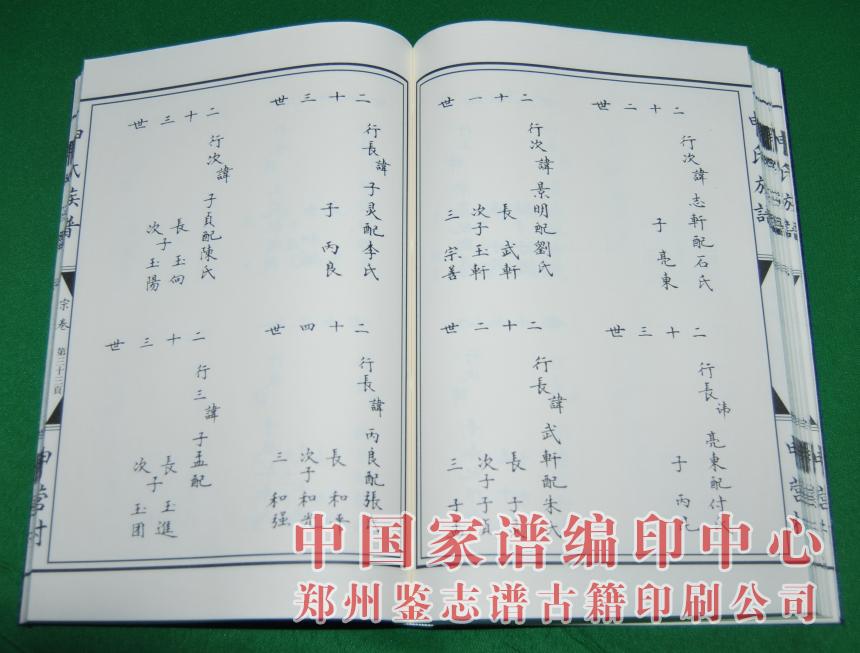 族譜
二十二世
行次諱志軒配石氏
子亮東
二十一世
行次諱景明配劉氏
長武軒
次子玉軒
三宗善
二十三世
行長讳亮東配付
子丙
二十二世
行長諱武軒配朱氏
長子
次子子貞
三子
二十三世
行長諱子灵配李氏
子丙良
二十三世
行次諱子貞配陳氏
長玉向
次子玉陽
二十四世
行長諱丙良配張氏
長和
次子和光
三和强
二十三世
行三諱子孟配
長玉進
次子玉团
氏族譜
宗卷
第三十三頁
申营村
中国家谱编印中心
郑州鉴志谱古籍印刷公司